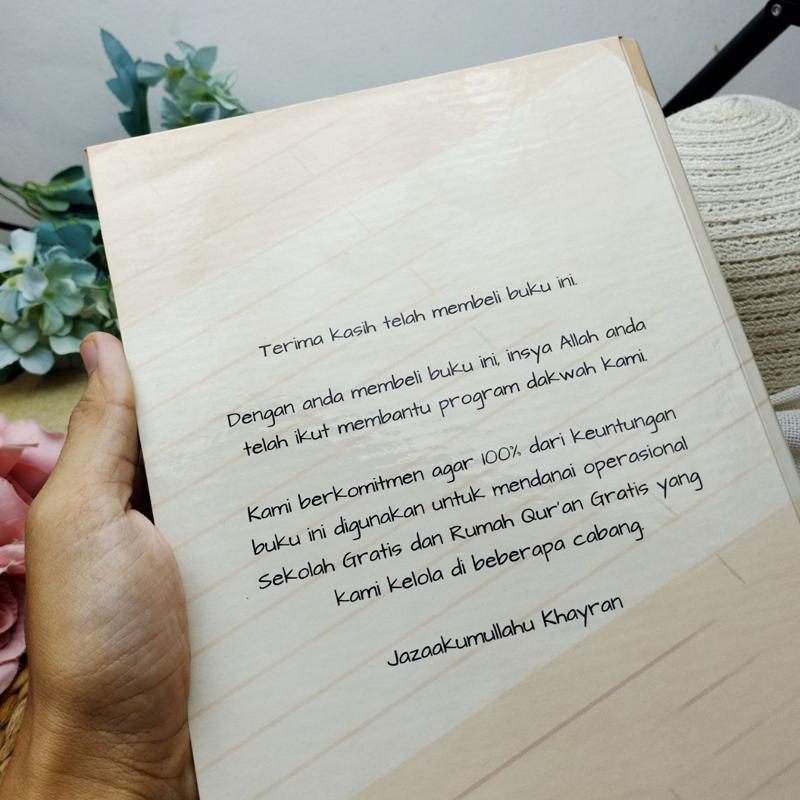 Terima kasih telah membeli buku ini.
Dengan anda membeli buku ini, insya Allah anda
telah ikut membantu program dakwah kami.
Kami berkomitmen agar 100% dari keuntungan
buku ini digunakan untuk mendanai operasional
Sekolah Gratis dan Rumah Qur'an Gratis yang
kami kelola di beberapa cabang.
Jazaakumullahu Khayran